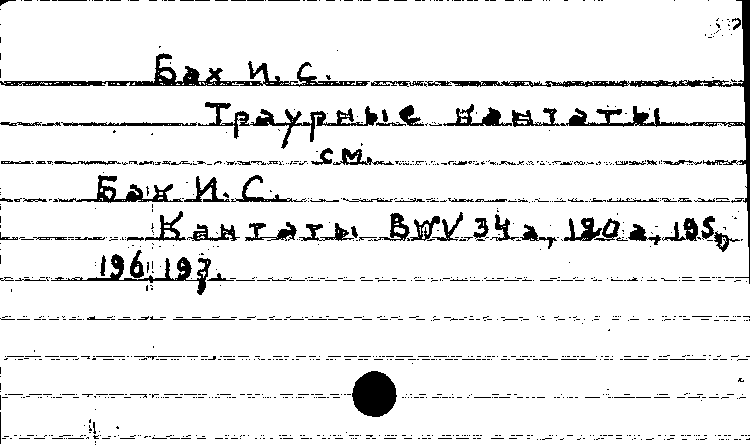 Бах И. С.
Траурные кантаты
см.
Бах И. С.
Кантаты BWV 34а, 120а, 195,
196, 197.